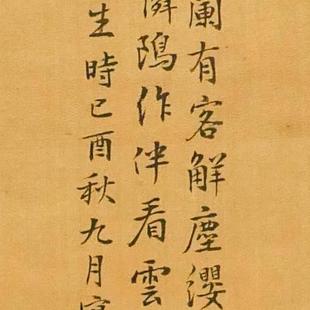 闌有客解塵纓
隅作伴看雲
生時己酉秋九月